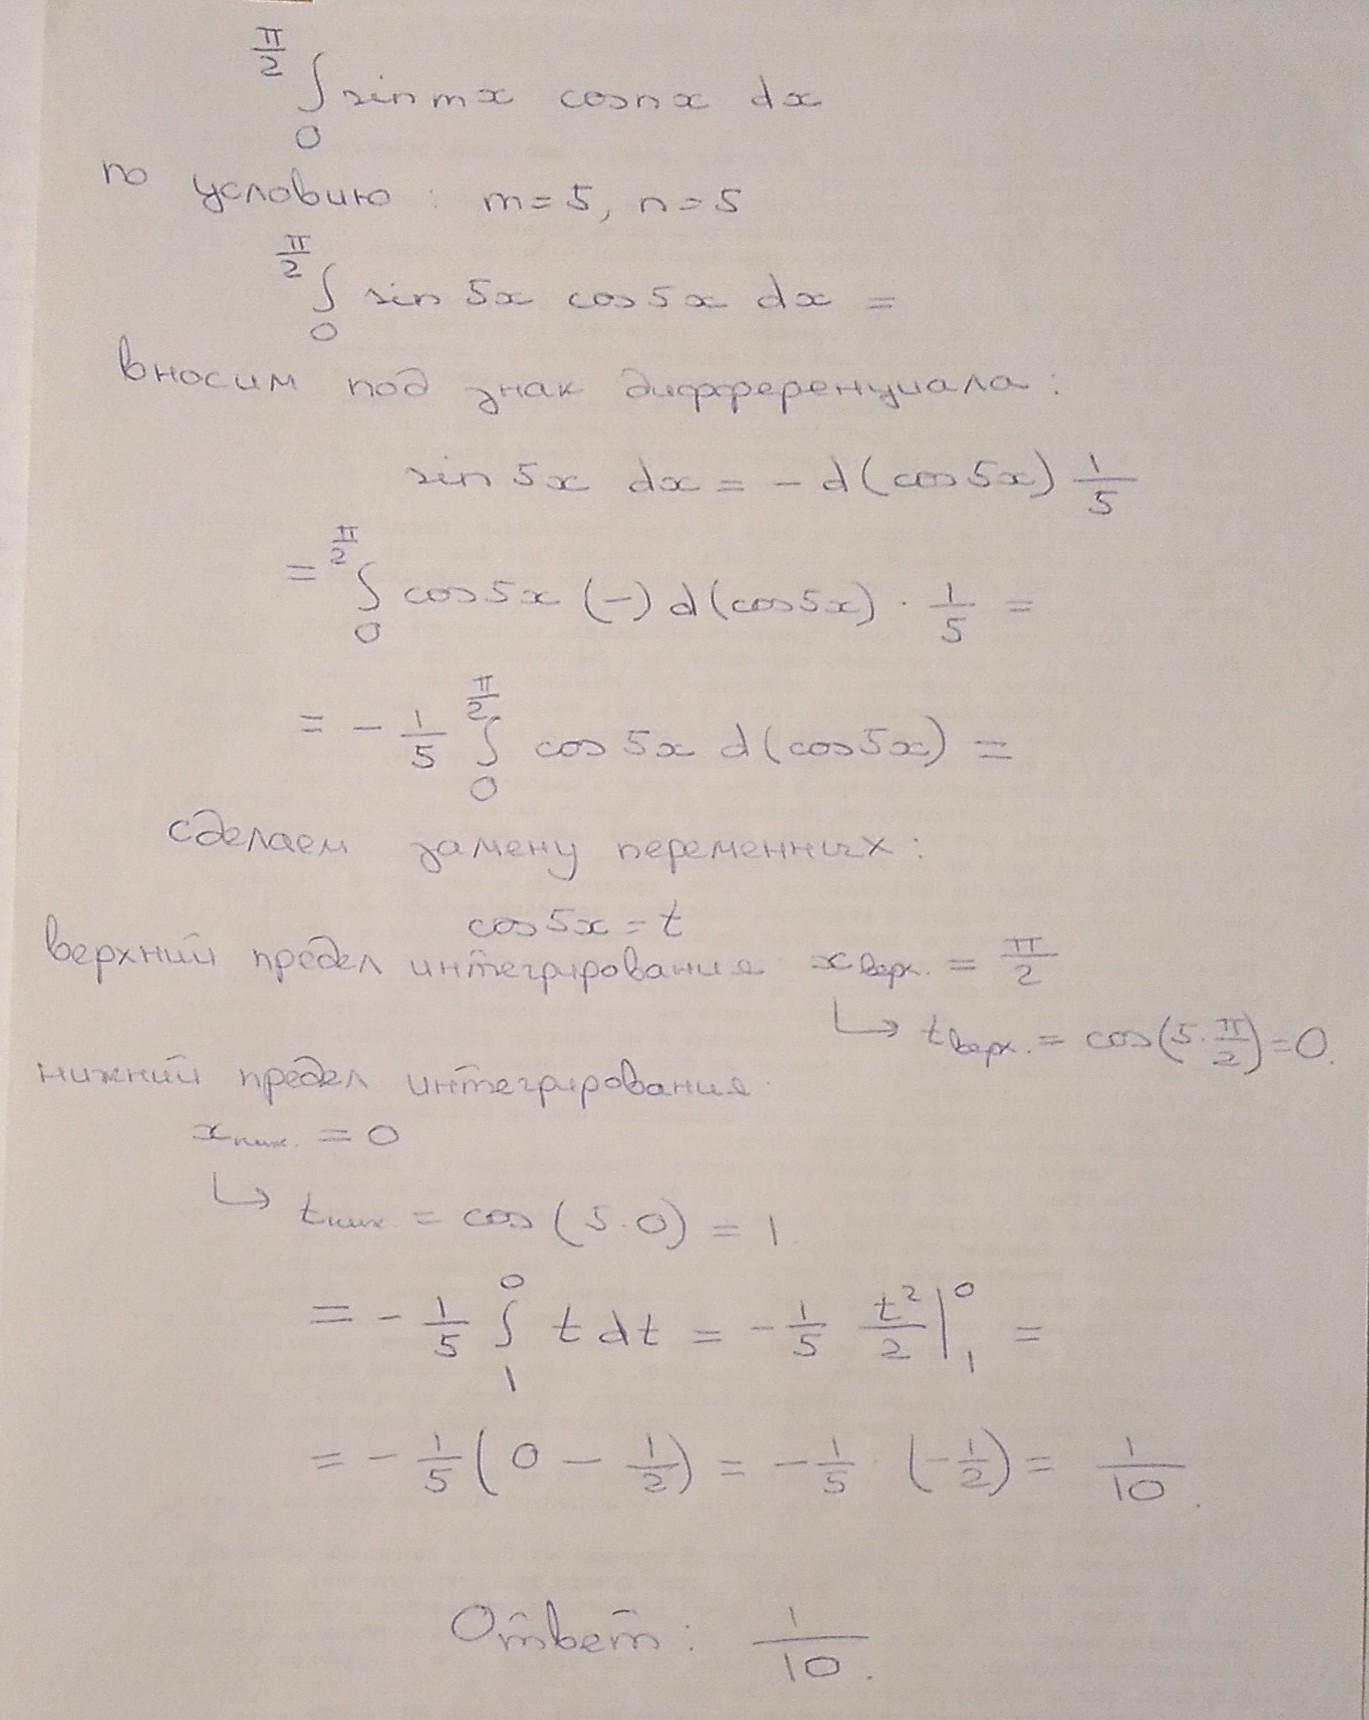 π/2 ∫ 0 sin mx cos nx dx
по условию : m = 5, n = 5
π/2 ∫ 0 sin 5x cos 5x dx =
вносим под знак дифференциала :
sin 5x dx = - d (cos 5x) 1/5
= π/2 ∫ 0 cos 5x (-) d (cos 5x) · 1/5 =
= - 1/5 π/2 ∫ 0 cos 5x d (cos 5x) =
сделаем замену переменных :
cos 5x = t
верхний предел интегрирования x верх. = π/2
↳ t верх. = cos (5 · π/2) = 0.
нижний предел интегрирования
x ниж. = 0
↳ t ниж. = cos (5 · 0) = 1.
= - 1/5 0 ∫ 1 t dt = - 1/5 t²/2 | 0 1 =
= - 1/5 (0 - 1/2) = - 1/5 · (- 1/2) = 1/10.
Ответ : 1/10.